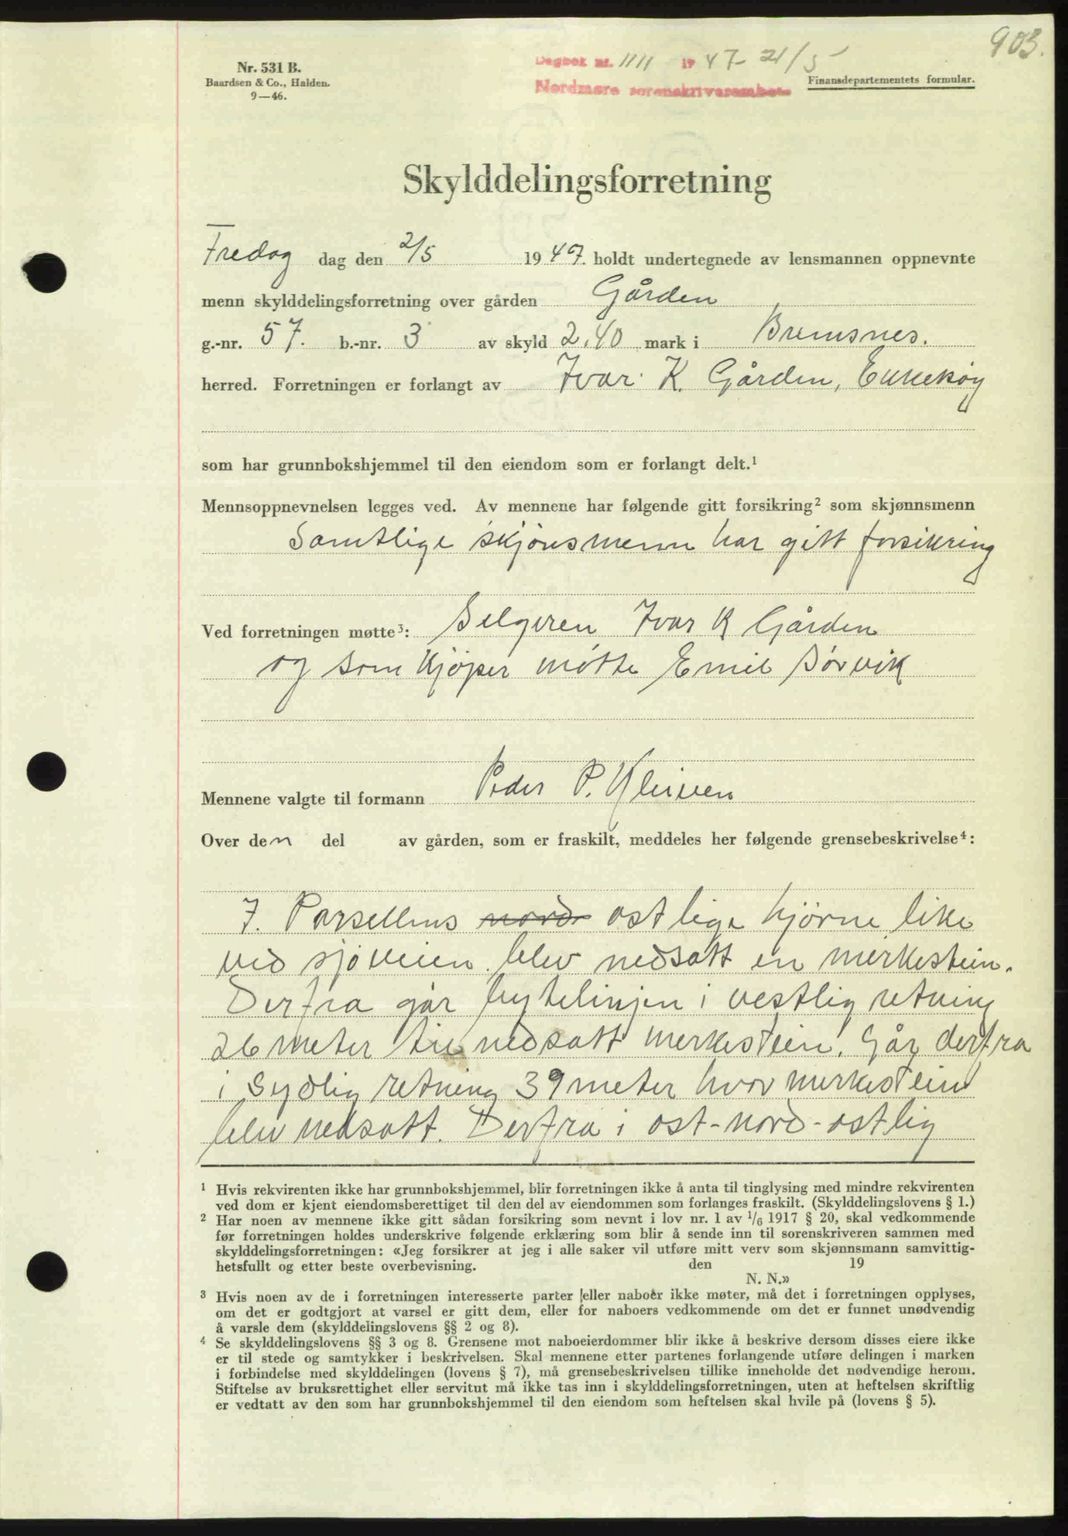 903.
Nr. 531 B.
Baardsen & Co., Halden.
9—46.
Dagbok nr. 1111 1947-21/5
Nordmøre sorenskriverembete
Finansdepartementets formular.
Skylddelingsforretning
Fredag dag den 2/5 1947. holdt undertegnede av lensmannen oppnevnte
menn skylddelingsforretning over gården Gården
g.-nr. 57. b.-nr. 3 av skyld 2,40 mark i Bremsnes.
herred. Forretningen er forlangt av Ivar K. Gården,
som har grunnbokshjemmel til den eiendom som er forlangt delt.¹
Mennsoppnevnelsen legges ved. Av mennene har følgende gitt forsikring² som skjønnsmenn
Samtlige skjönsmenn har gitt forsikring
Ved forretningen møtte³: Selgeren Ivar K Gården
og som kjöper mötte Emil Sørvik
Mennene valgte til formann Peder P. Kleiven
Over den del av gården, som er fraskilt, meddeles her følgende grensebeskrivelse⁴:
I. Parsellens nord ostlige hjörne like
ved sjöveien blev nedsatt en merkestein.
Derfra går bytelinjen i vestlig retning
26 meter til nedsatt merkestein. Går derfra
i Sydlig retning 39 meter hvor merkestein
blev nedsatt. Derfra i ost-nord-ostlig
¹ Hvis rekvirenten ikke har grunnbokshjemmel, blir forretningen ikke å anta til tinglysing med mindre rekvirenten
ved dom er kjent eiendomsberettiget til den del av eiendommen som forlanges fraskilt. (Skylddelingslovens § 1.)
² Har noen av mennene ikke gitt sådan forsikring som nevnt i lov nr. 1 av 1/6 1917 § 20, skal vedkommende
før forretningen holdes underskrive følgende erklæring som blir å sende inn til sorenskriveren sammen med
skylddelingsforretningen: «Jeg forsikrer at jeg i alle saker vil utføre mitt verv som skjønnsmann samvittig-
hetsfullt og etter beste overbevisning. den 19
N. N.»
³ Hvis noen av de i forretningen interesserte parter (eller naboer ikke møter, må det i forretningen opplyses,
om det er godtgjort at varsel er gitt dem, eller for naboers vedkommende om det er funnet unødvendig
å varsle dem (skylddelingslovens §§ 2 og 8).
⁴ Se skylddelingslovens §§ 3 og 8. Grensene mot naboeierdommer blir ikke å beskrive dersom disses eiere ikke
er til stede og samtykker i beskrivelsen. Skal mennene etter partenes forlangende utføre delingen i marken
i forbindelse med skylddelingen (lovens § 7), må grensebeskrivelsen tillike inneholde det nødvendige herom.
Stiftelse av bruksrettighet eller servitut må ikke tas inn i skylddelingsforretningen, uten at heftelsen skriftlig
er vedtatt av den som har grunnbokshjemmel til den eiendom som heftelsen skal hvile på (lovens § 5).